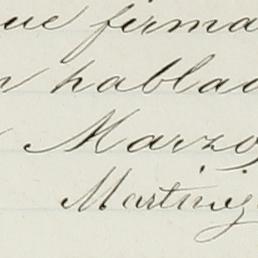 ue firma
n hablad
Marzo
Martinez